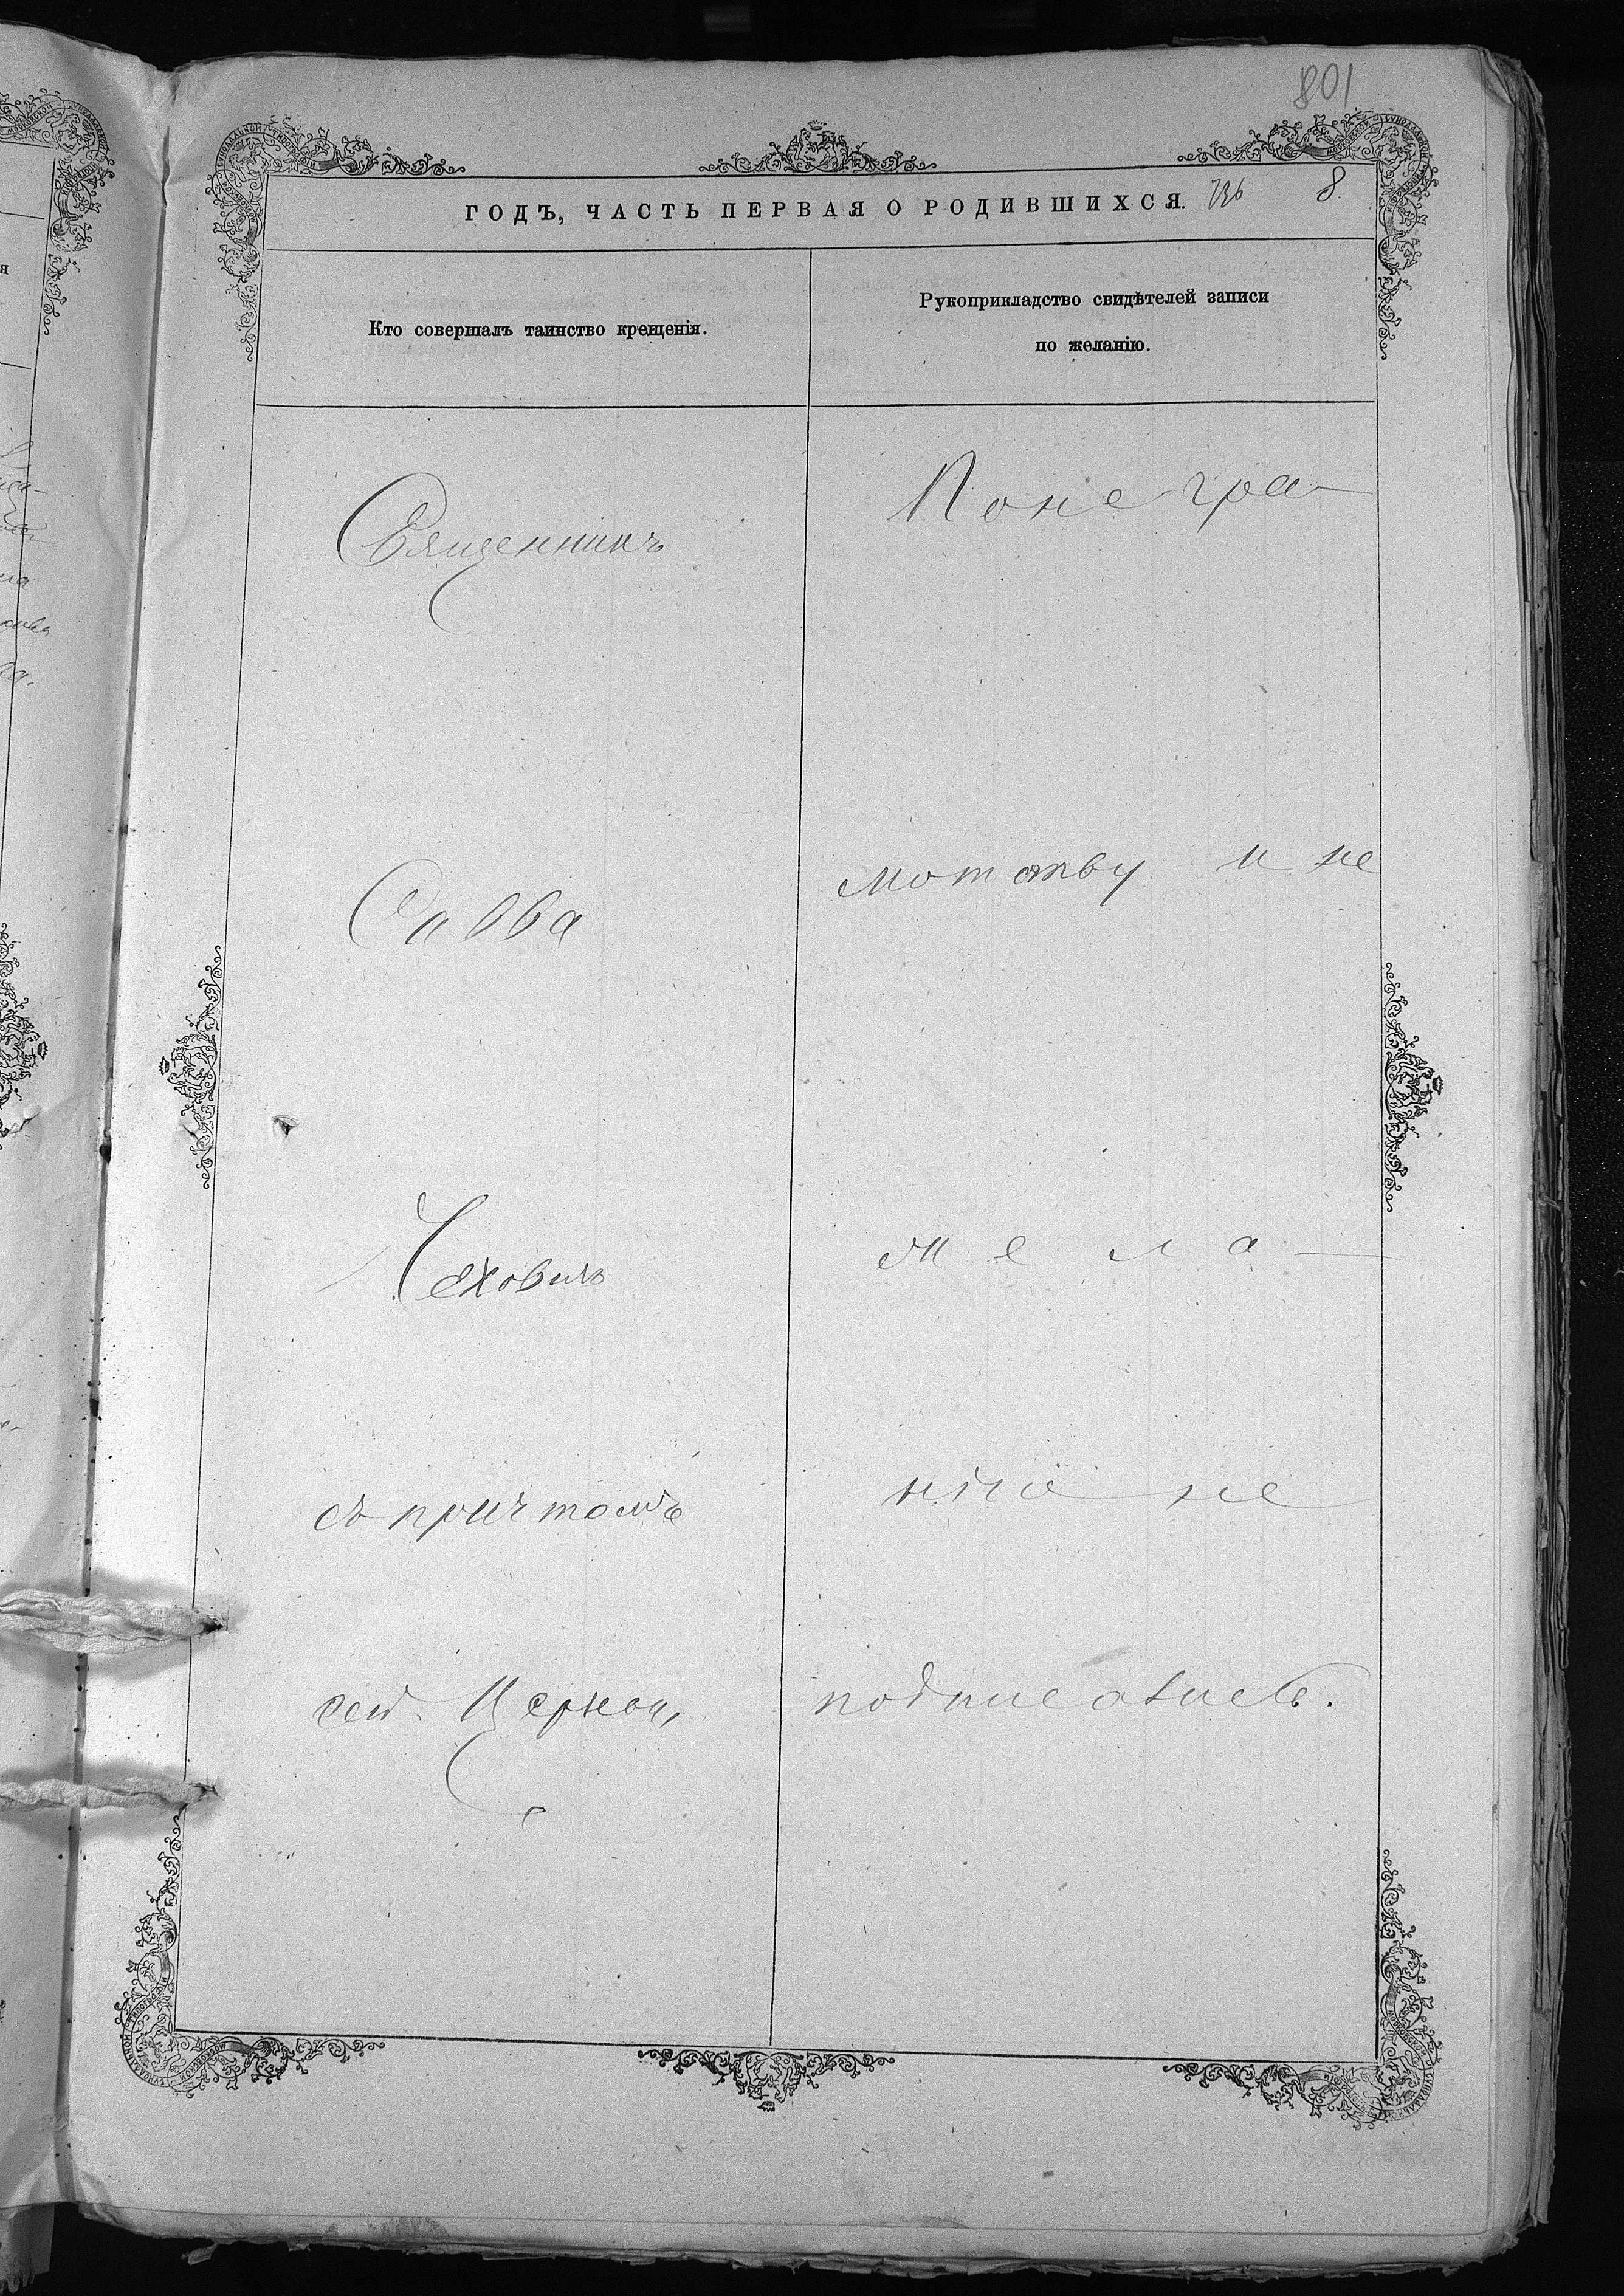 801
ГОДЪ, ЧАСТЬ ПЕРВАЯ О РОДИВШИХСЯ. 736 8.
Кто совершалъ таинство крещенія.
Рукоприкладство свидѣтелей записи
по желанію.
Священникъ
Савва
Чеховичъ
съ причтомъ
сей Церкви,
По не гра-
мотству и не
жела-
нію не
подписались.